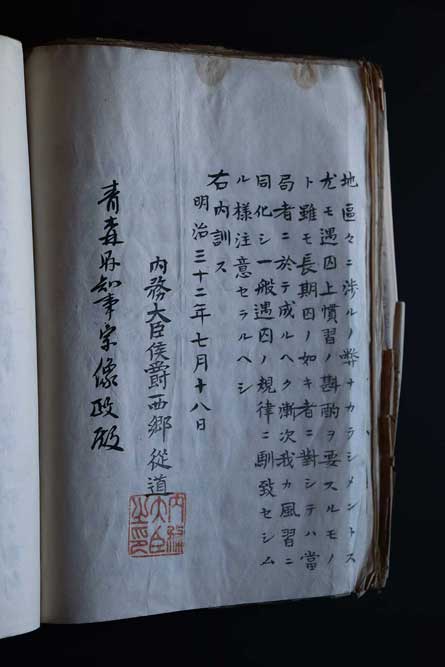 地區々ニ渉ルノ弊ナカラシメントス
尤モ遇囚上慣習ノ斟酌ヲ要スルモノ
ト雖モ長期囚ノ如キ者ニ對シテハ當
局者ニ於テ成ルヘク漸次我カ風習ニ
同化シ一般遇囚ノ規律ニ馴致セシム
ル様注意セラルヘシ
右内訓ス
明治三十二年七月十八日
内務大臣侯爵西郷從道
内務大臣之印
青森縣知事宗像政殿